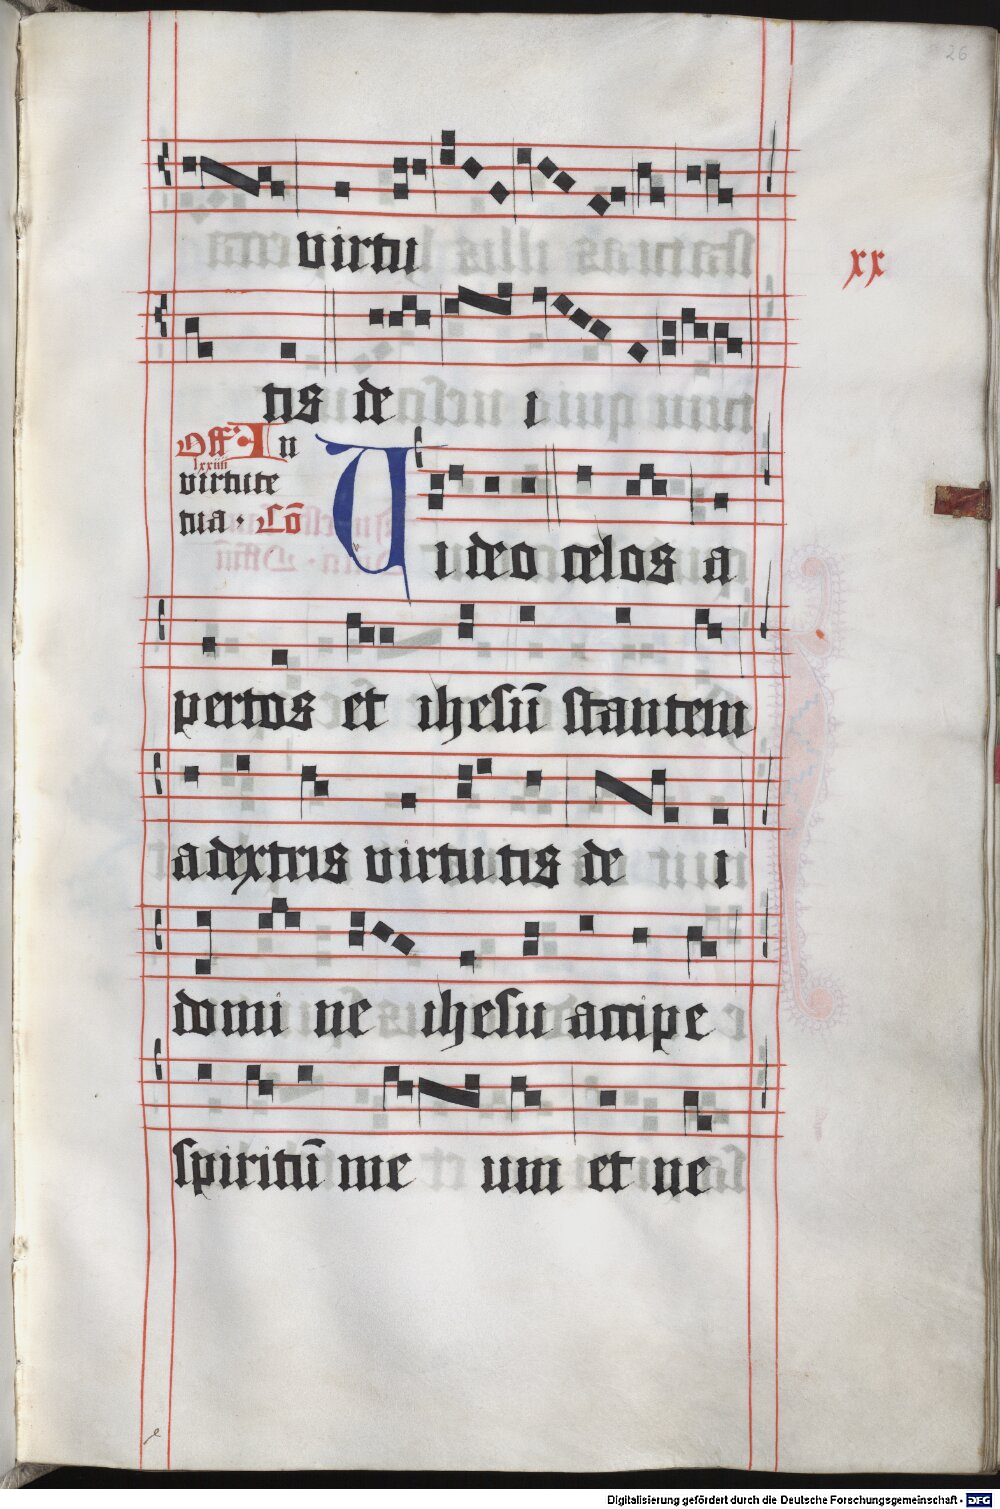 26
virtu
xx
tis de i
Off. In
lxxiiii
virtute
tua. Cō
Uideo celos a
pertos et ihesū stantem
adextris virtutis de i
domine ihesu accipe
spiritū meum et ne
Digitalisierung gefördert durch die Deutsche Forschungsgemeinschaft - DFG